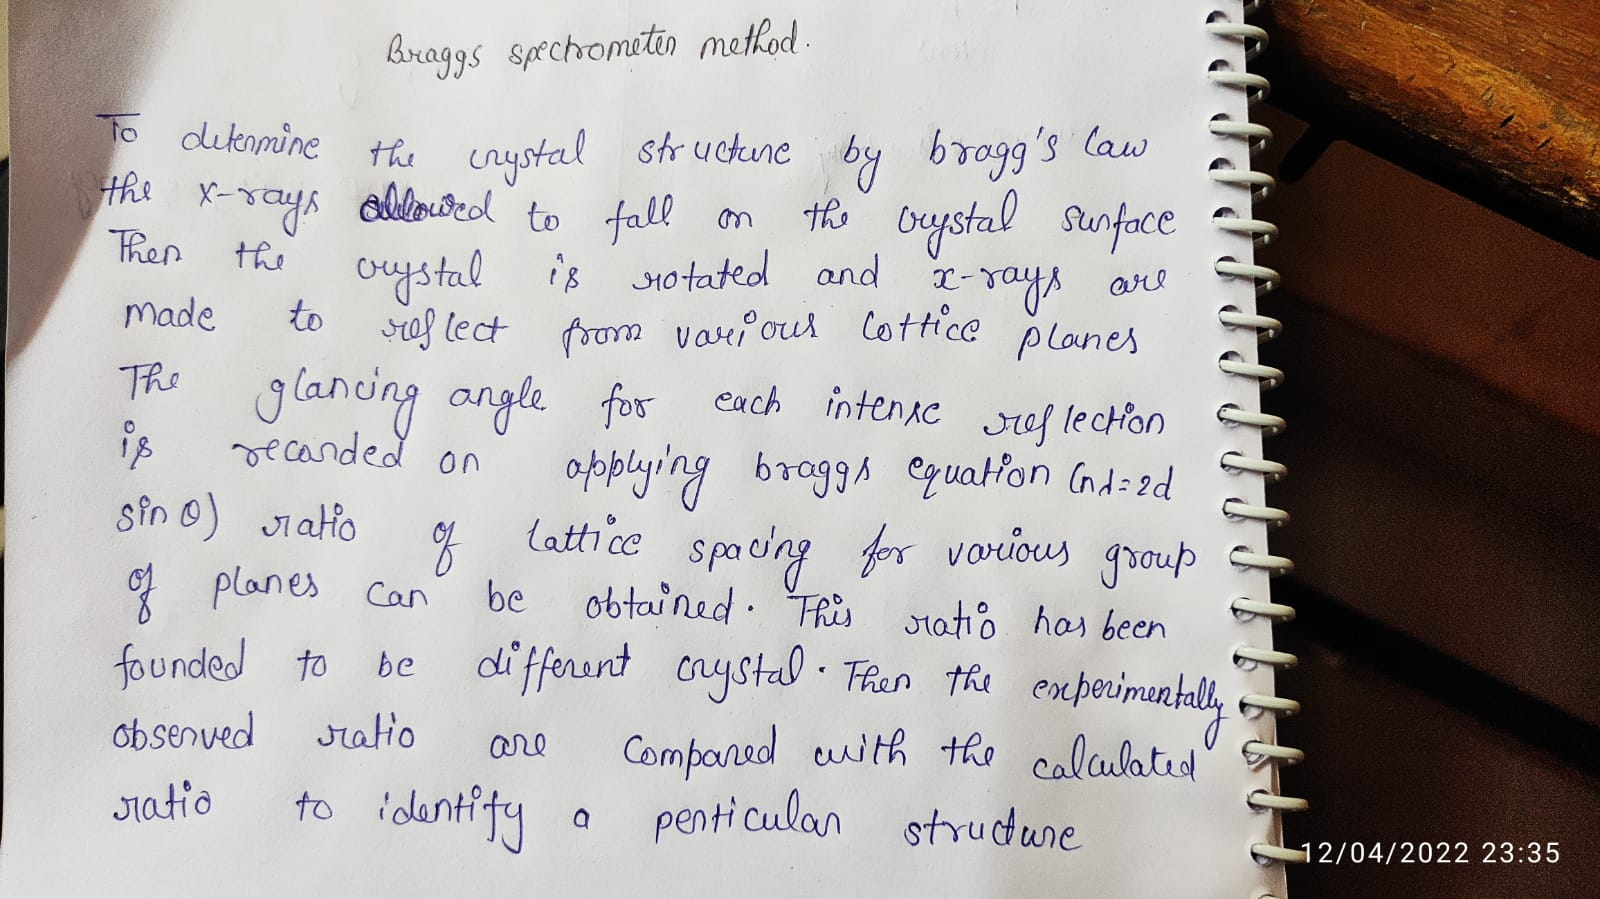 Braggs spectrometer method.
To determine the crystal structure by bragg's law
the x-rays allowed to fall on the crystal surface
Then the crystal is rotated and x-rays are
made to reflect from various lottice planes
The glancing angle for each intense reflection
is recorded on applying braggs equation (nλ=2d
sin θ) ratio of lattice spacing for various group
of planes can be obtained. This ratio has been
founded to be different crystal. Then the experimentally
observed ratio are compared with the calculated
ratio to identify a perticular structure
12/04/2022 23:35